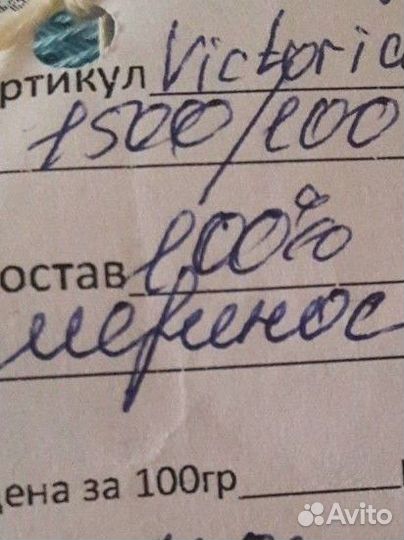 ртикул Victoria
1500/100
остав 100%
меринос
цена за 100гр
Avito